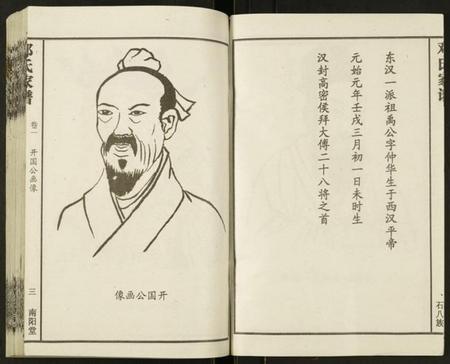 邓氏家谱
卷一
开国公画像
三
南阳堂
开国公画像
东汉一派祖禹公字仲华生于西汉平帝
元始元年壬戌三月初一日未时生
汉封高密侯拜大傅二十八将之首
邓氏家谱
石八族